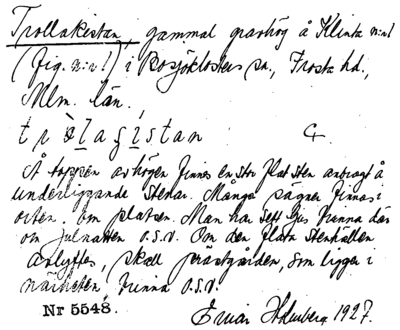 Trollakistan, gammal gravhög å Klinta n:o 1
(fig. n:o 1) i Bosjöklosters sn, Frosta hd.,
Mlm. län.
Å toppen av högen finnes en stor flat sten anbragt å
underliggande stenar. Många sägner finnas i
orten om platsen. Man har sett ljus brinna där
om julnatten o.s.v. Om den flata stenhällen
avlyftes, skall prästgården, som ligger i
närheten brinna o.s.v.
Nr 5548. Einar Holmberg 1927.